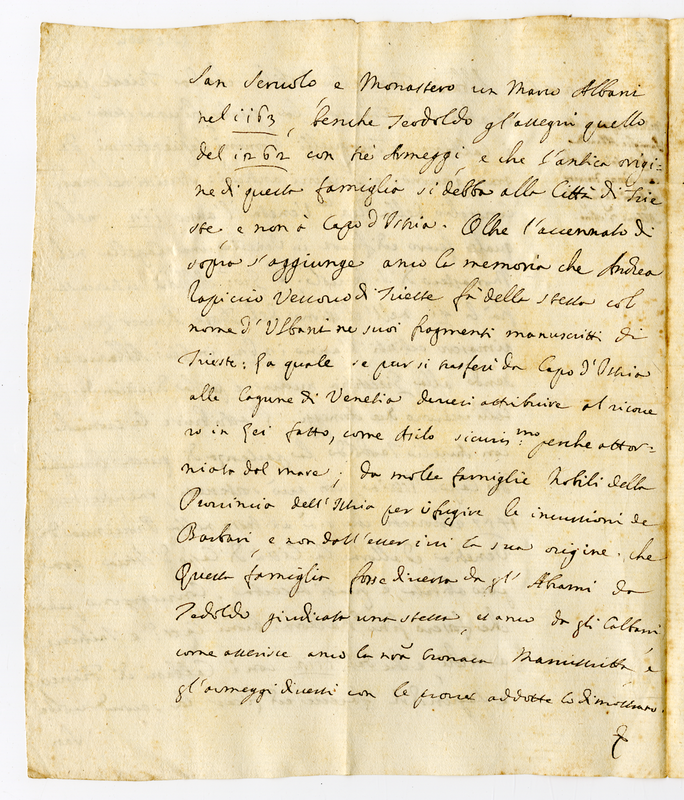 San Seruolo e Monastero un Marco Albani
nel 1163, benche Tedoldo gl'assegni quello
del 1262 con tre Armeggi, e che l'antica origi=
ne di questa famiglia si debba alla Città di Trie
ste e non à Capo d'Istria. Oltre l'accennato di
sopra s'aggiunge anco la memoria che Andrea
Rapiccio Vescouo di Trieste fà della stessa col
nome d'Albani ne suoi fragmenti manuscritti di
Trieste: la quale se pur si trasferì da Capo d'Istria
alle lagune di Venetia deuesi attribuire al ricoue
ro in lei fatto, come Asilo sicuriss.mo perche attor=
niata dal mare; da molte famiglie Nobili della
Prouincia dell'Istria per isfugire le incursioni de
Barbari, e non dall'esser iui la sua origine. che
Questa famiglia fosse diuersa da gl' Abrami da
Tedoldo giudicata una stessa, et anco da gli Calbani
come asserisce anco la nõa Cronaca Manuscritta, e
gl'armeggi diuersi con le proue addotte lo dimostrano.